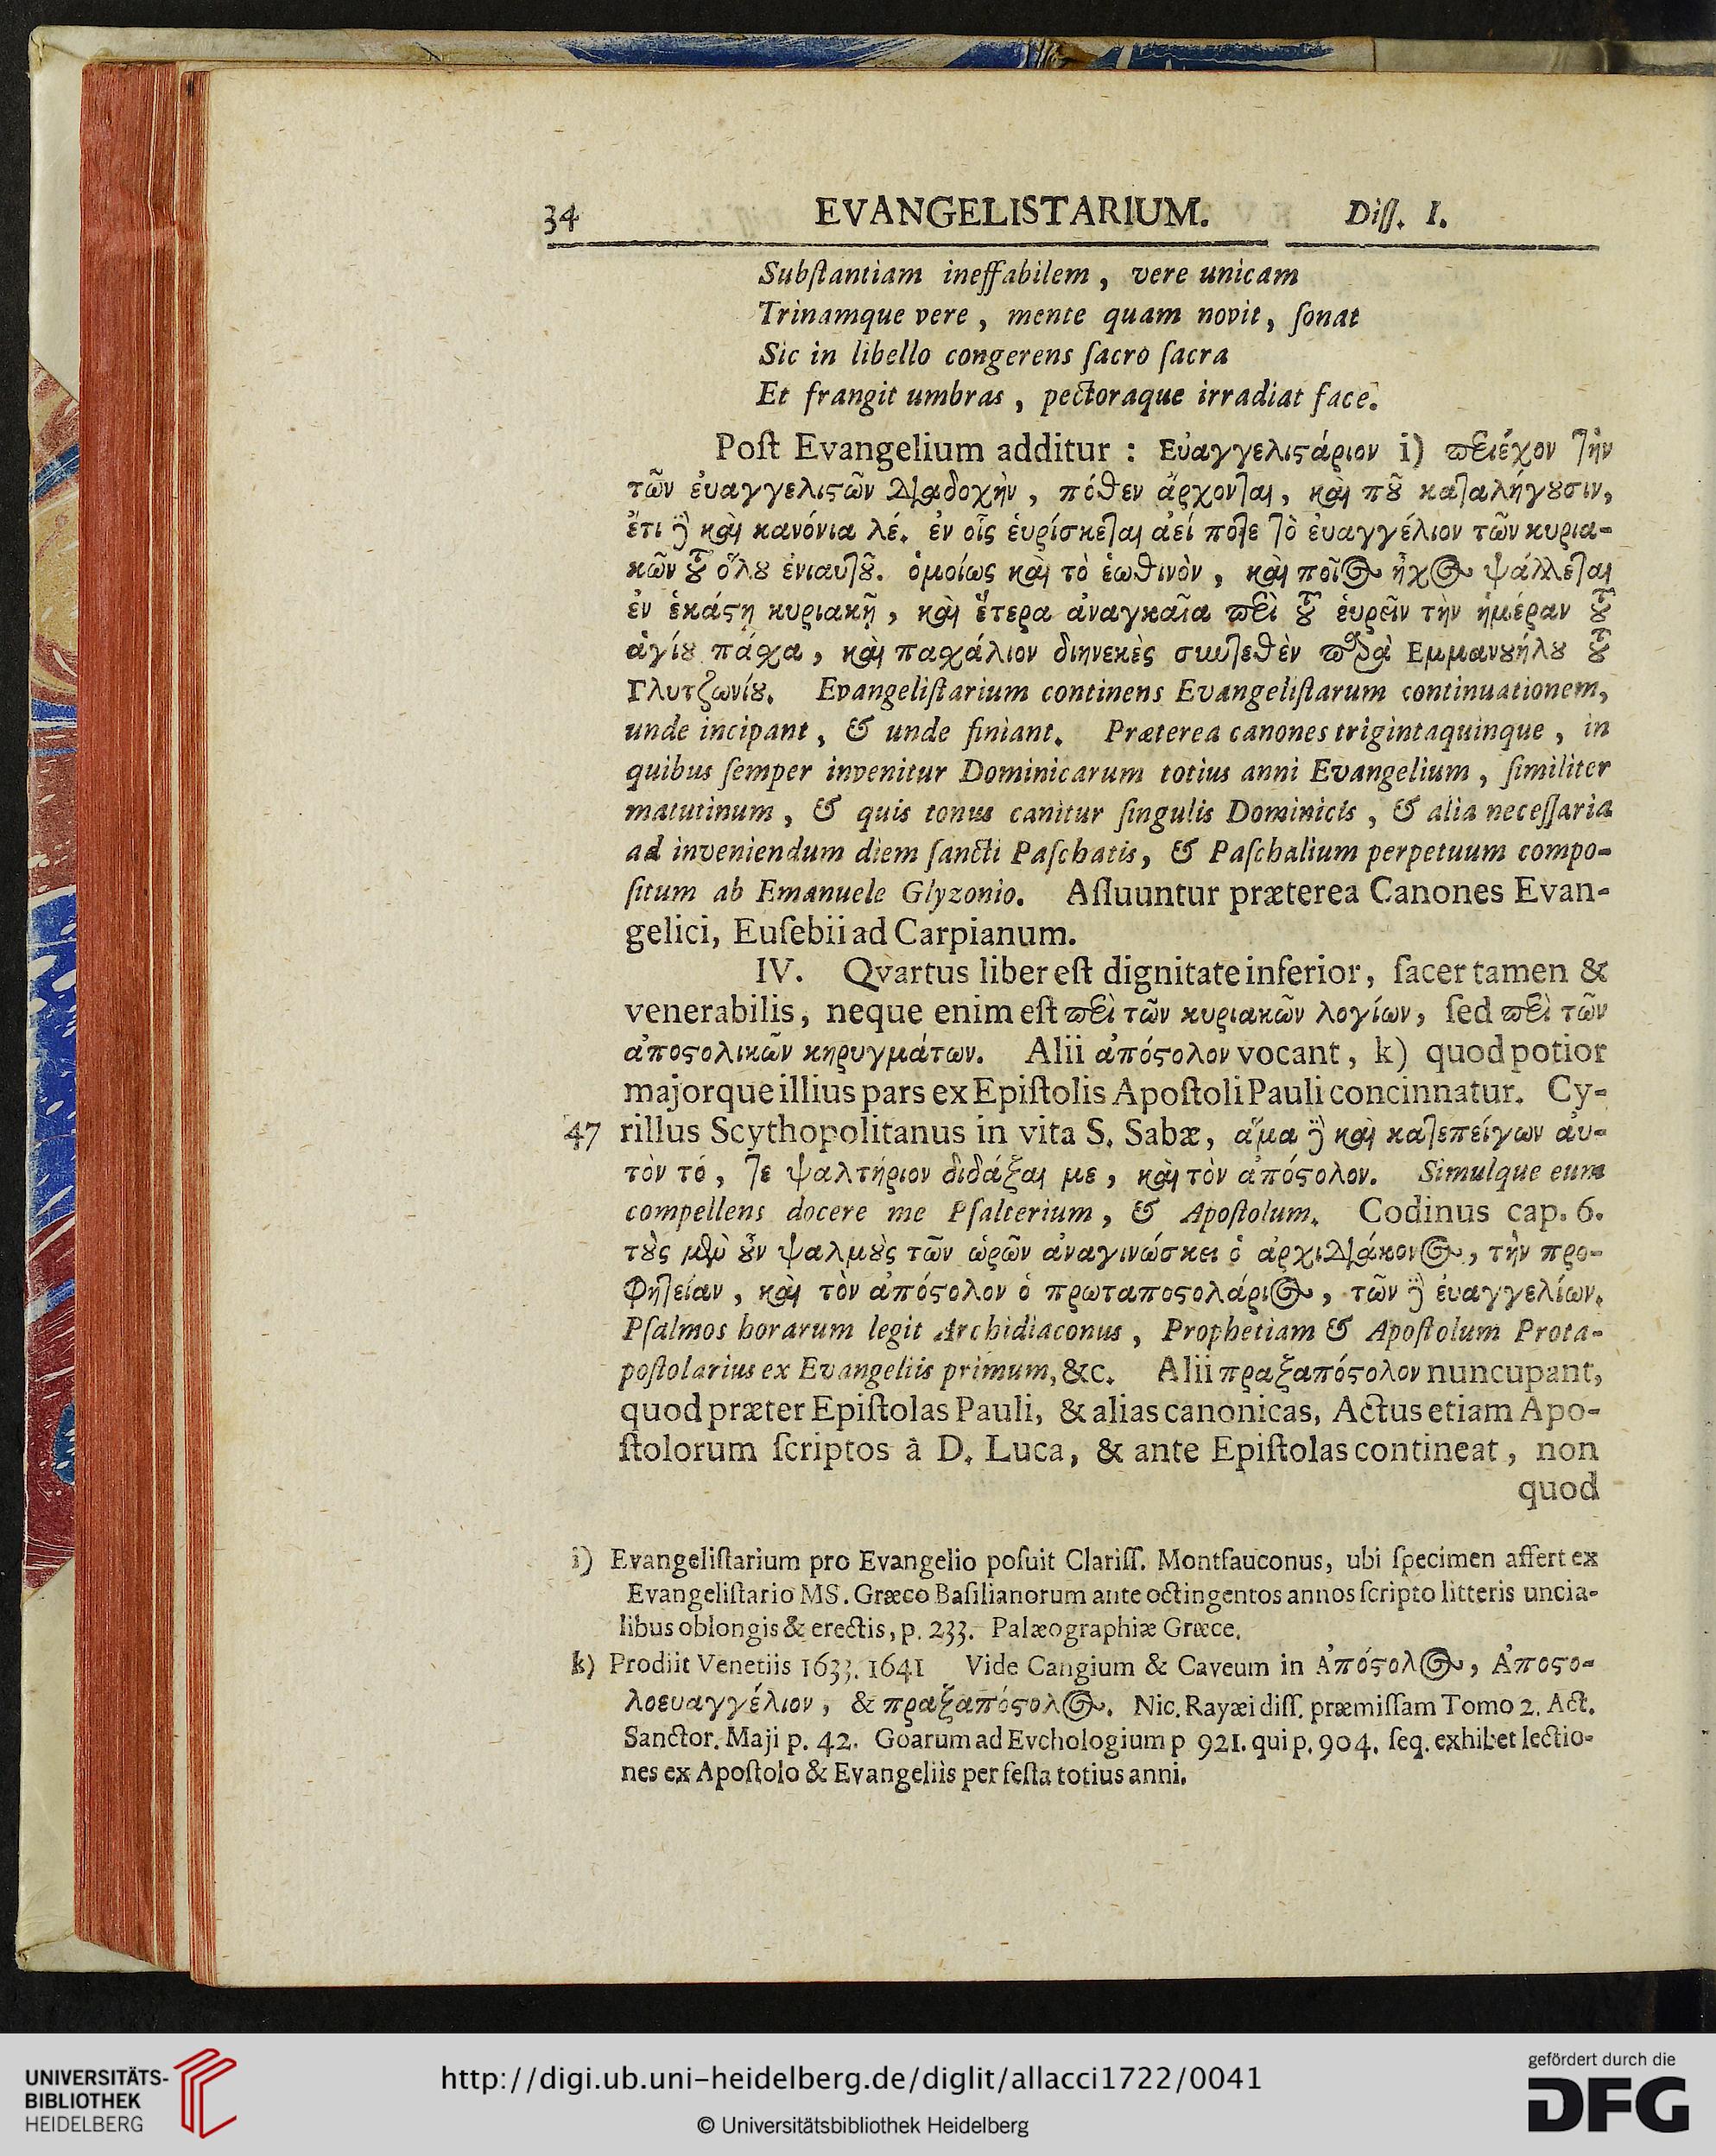 34 EVANGELISTARIUM. Diſſ. I.
Subſtantiam ineffabilem , vere unicam
Trinamque vere , mente quam novit, ſonat
Sic in libello congerens ſacro ſacra
Et frangit umbras , pectoraque irradiat face.
Poſt Evangelium additur : Εὐαγγελιϛάριον i) ϖεριέχον τὴν
τῶν ἐυαγγελιϛῶν διαδοχὴν , πόθεν ἄρχονται, καὶ πȣ̃ καταλήγȣσιν,
ἔτι δὲ καὶ κανόνια λέ. ἐν οἷς ἑυρίσκεται ἀεί ποτε τὸ ἐυαγγέλιον τῶν κυρια-
κῶν τȣ̃ ὅλȣ ἐνιαυτȣ̃. ὁμοίως καὶ τὸ ἑωθινὸν , καὶ ποῖος ἦχος ψάλλεται
ἐν ἑκάϛῃ κυριακῇ , καὶ ἕτερα ἀναγκαῖα ϖερὶ τȣ̃ ἑυρεῖν τὴν ἡμέραν τȣ̃
ἁγίȣ πάχα , καὶ παχάλιον διηνεκὲς συντεθὲν ϖαρὰ Εμμανȣήλȣ τȣ̃
Γλυτζωνίȣ. Evangeliſtarium continens Evangeliſtarum continuationem,
unde incipant , & unde finiant. Præterea canones trigintaquinque , in
quibus ſemper invenitur Dominicarum totius anni Evangelium , ſimiliter
matutinum , & quis tonus canitur ſingulis Dominicis , & alia neceſſaria
ad inveniendum diem ſancti Paſchatis, & Paſchalium perpetuum compo-
ſitum ab Emanuele Glyzonio. Aſſuuntur præterea Canones Evan-
gelici, Euſebii ad Carpianum.
IV. Qvartus liber eſt dignitate inferior, ſacer tamen &
venerabilis, neque enim eſt ϖερὶ τῶν κυριακῶν λογίων, ſed ϖερὶ τῶν
ἀποϛολικῶν κηρυγμάτων. Alii ἀπόϛολον vocant, k) quod potior
majorque illius pars ex Epiſtolis Apoſtoli Pauli concinnatur. Cy-
47 rillus Scythopolitanus in vita S. Sabæ, ἅμα δὲ καὶ κατεπείγων ἀυ-
τὸν τό , τε ψαλτήριον διδάξαι με , καὶ τὸν ἀπόϛολον. Simulque eum
compellens docere me Pſalterium , & Apoſtolum. Codinus cap. 6.
τȣ̀ς μὲν ȣ̓̃ν ψαλμȣ̀ς τῶν ὡρῶν ἀναγινώσκει ὁ ἀρχιδιάκονος, τὴν προ-
φητείαν , καὶ τὸν ἀπόϛολον ὁ πρωταποϛολάριος , τῶν δὲ ἐυαγγελίων.
Pſalmos horarum legit Archidiaconus , Prophetiam & Apoſtolum Prota-
poſtolarius ex Evangeliis primum,&c. Alii πραξαπόϛολον nuncupant,
quod præter Epiſtolas Pauli, & alias canonicas, Actus etiam Apo-
ſtolorum ſcriptos à D. Luca, & ante Epiſtolas contineat , non
quod
i) Evangeliſtarium pro Evangelio poſuit Clariſſ. Montfauconus, ubi ſpecimen affert ex
Evangeliſtario MS. Græco Baſilianorum ante octingentos annos ſcripto litteris uncia-
libus oblongis & erectis, p. 233. Palæographiæ Græce.
k) Prodiit Venetiis 1633. 1641 Vide Cangium & Caveum in Ἀπόϛολος , Ἀποϛο-
λοευαγγέλιον , & πραξαπόϛολος. Nic. Rayæi diſſ. præmiſſam Tomo 2. Act.
Sanctor. Maji p. 42. Goarum ad Evchologium p 921. qui p. 904. ſeq. exhibet lectio-
nes ex Apoſtolo & Evangeliis per feſta totius anni.
UNIVERSITÄTS-
BIBLIOTHEK
HEIDELBERG
http://digi.ub.uni-heidelberg.de/diglit/allacci1722/0041
© Universitätsbibliothek Heidelberg
gefördert durch die
DFG